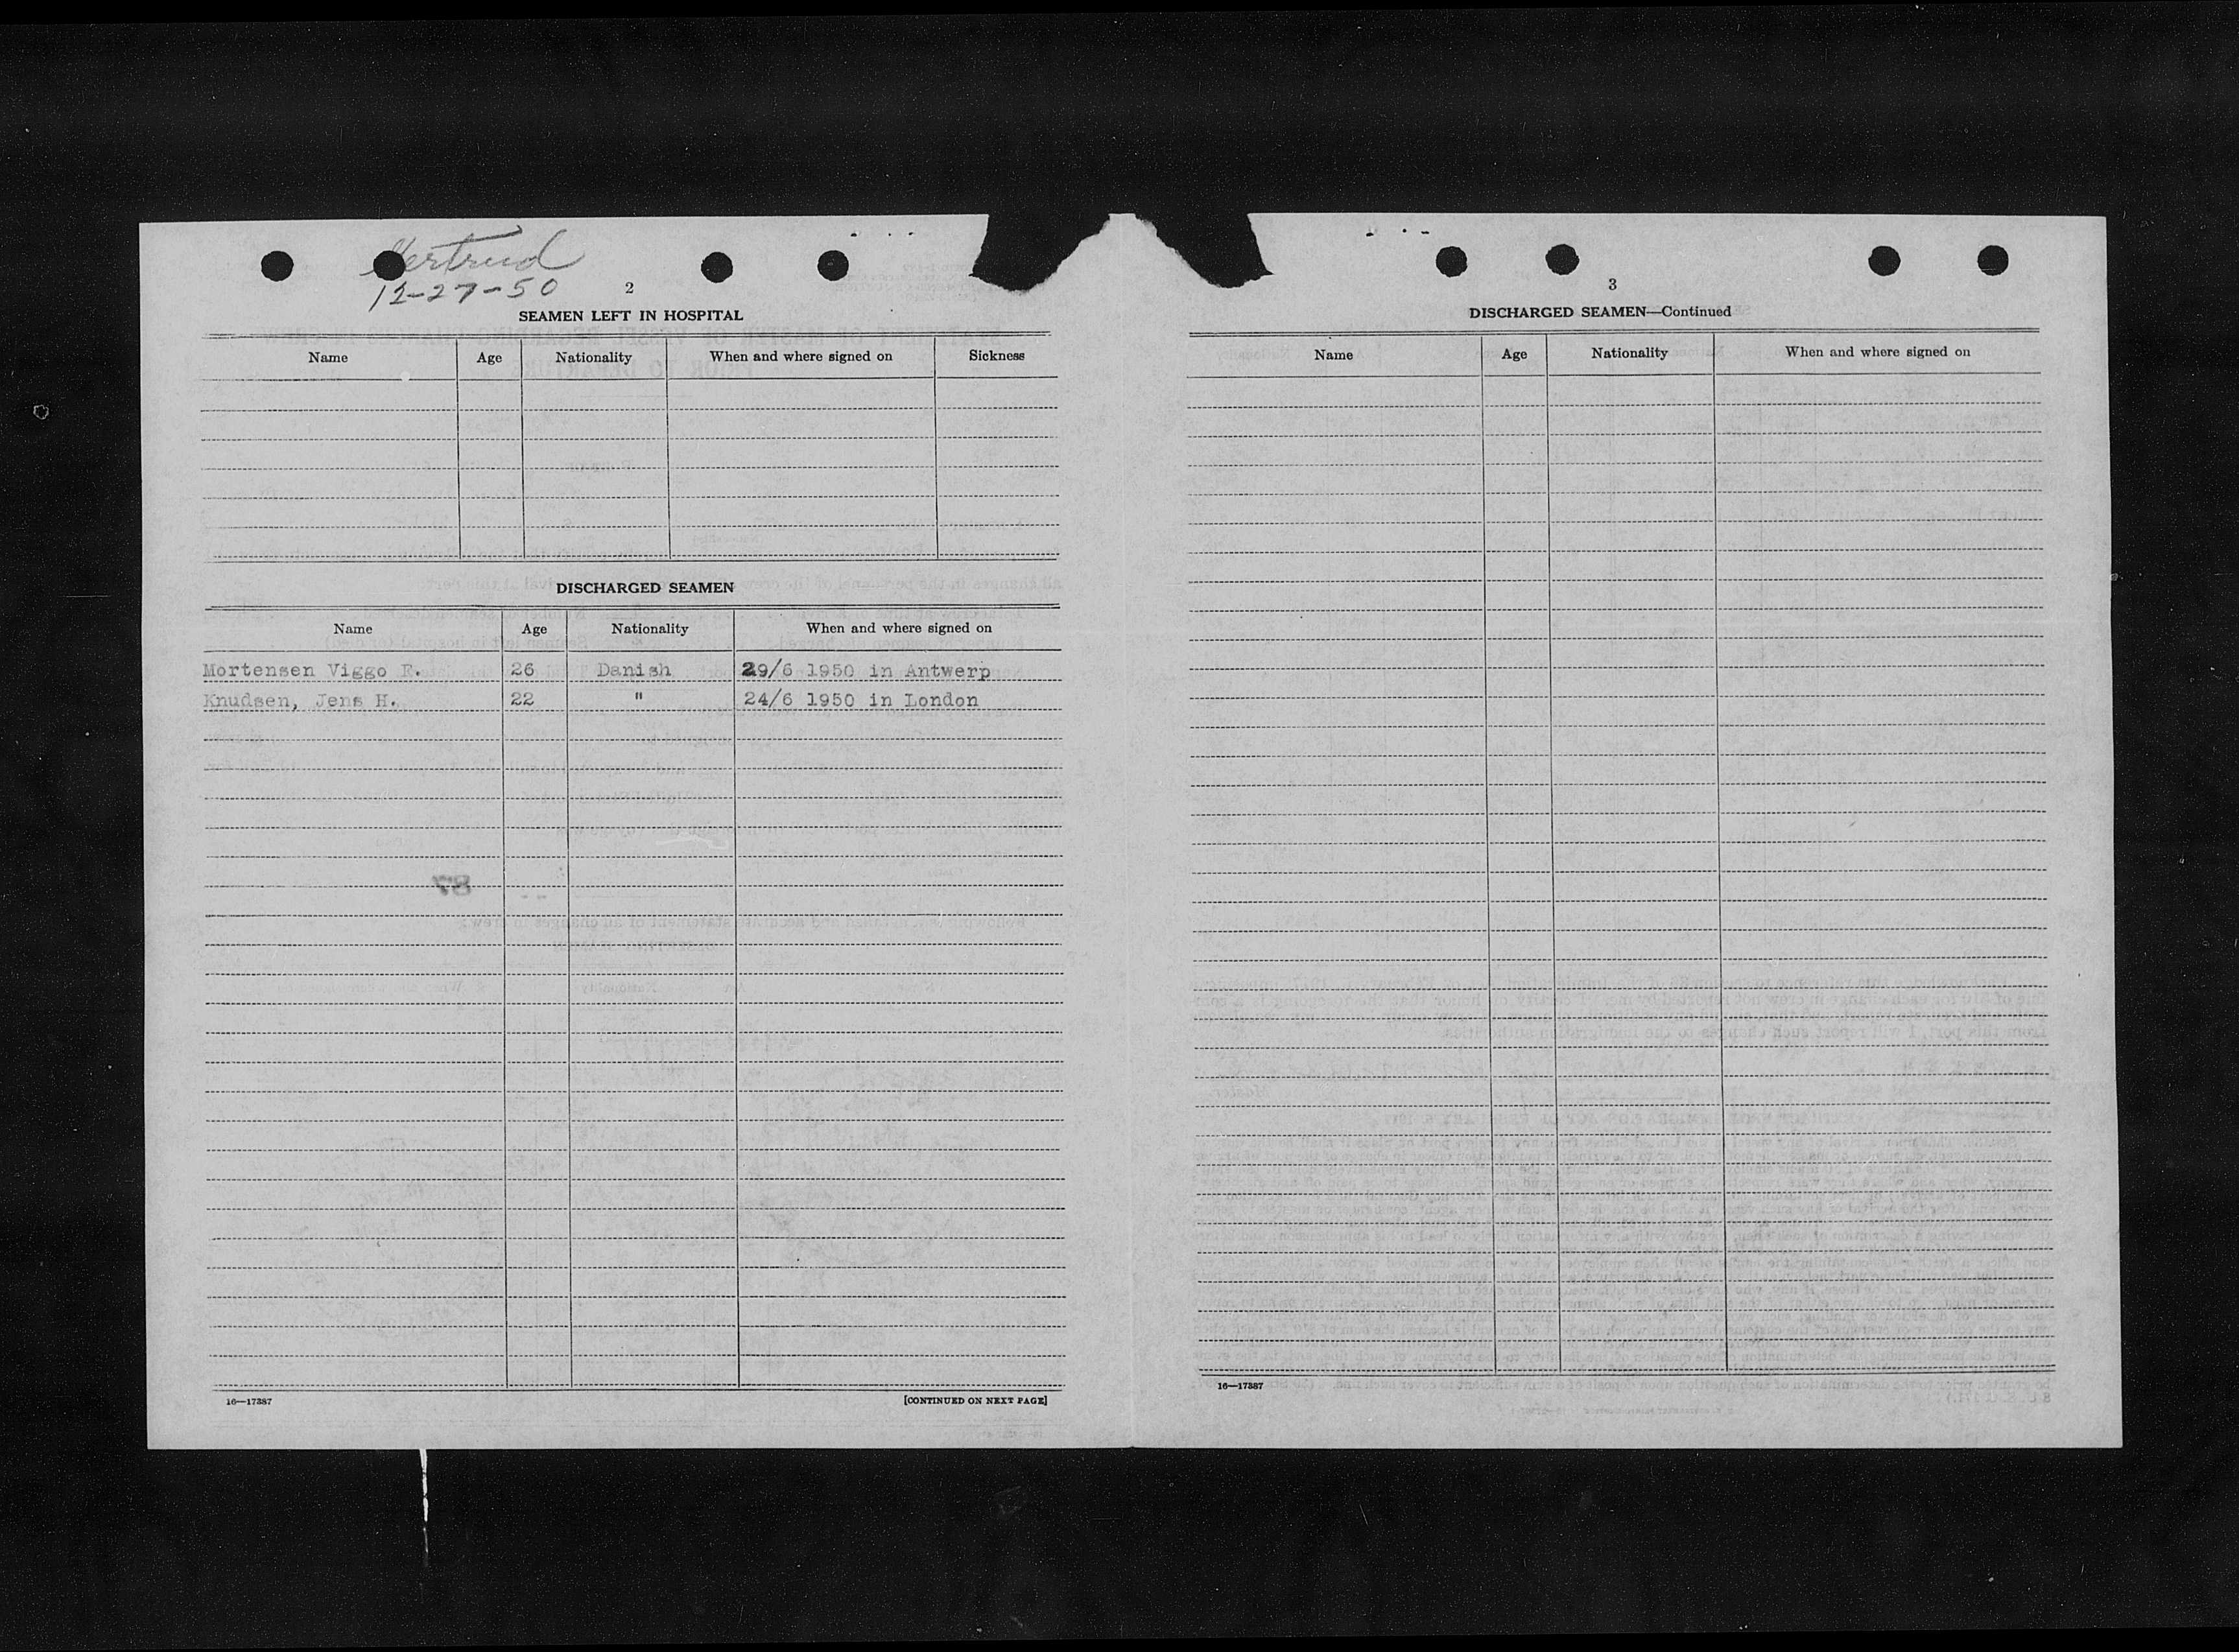 Gertrud
12-27-50
2
SEAMEN LEFT IN HOSPITAL
Name Age Nationality When and where signed on Sickness
DISCHARGED SEAMEN
Name Age Nationality When and where signed on
Mortensen Viggo E. 26 Danish 29/6 1950 in Antwerp
Knudsen, Jens H. 22 " 24/6 1950 in London
16—17387
[CONTINUED ON NEXT PAGE]
3
DISCHARGED SEAMEN—Continued
Name Age Nationality When and where signed on
16—17387